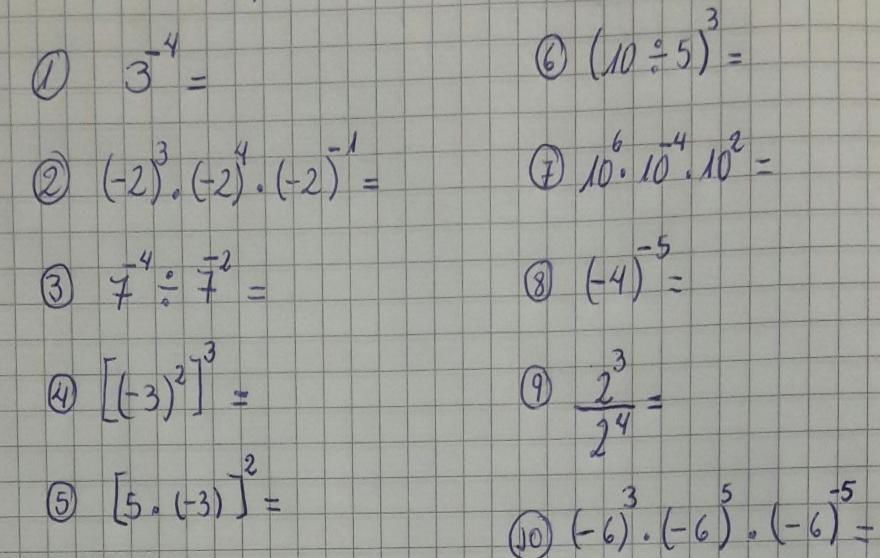 ① 3⁻⁴ =
② (-2)³ · (-2)⁴ · (-2)⁻¹ =
③ 7⁻⁴ ÷ 7⁻² =
④ [(-3)²]³ =
⑤ [5 · (-3)]² =
⑥ (10 ÷ 5)³ =
⑦ 10⁶ · 10⁻⁴ · 10² =
⑧ (-4)⁻⁵ =
⑨ 2³/2⁴ =
⑩ (-6)³ · (-6)⁵ · (-6)⁻⁵ =